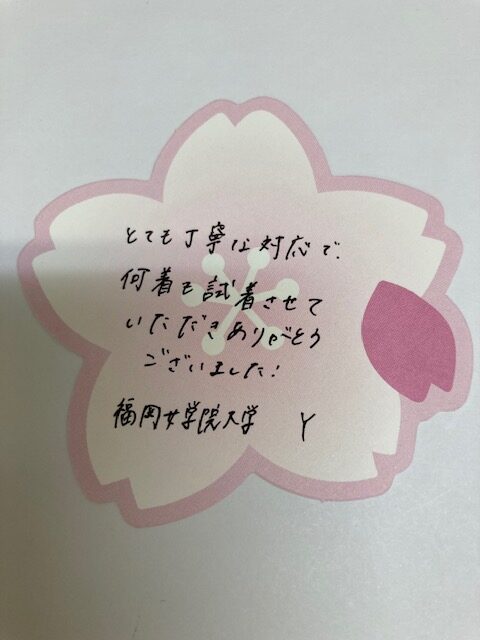 とても丁寧な対応で、
何着も試着させて
いただきありがとう
ございました！
福岡女学院大学 Y